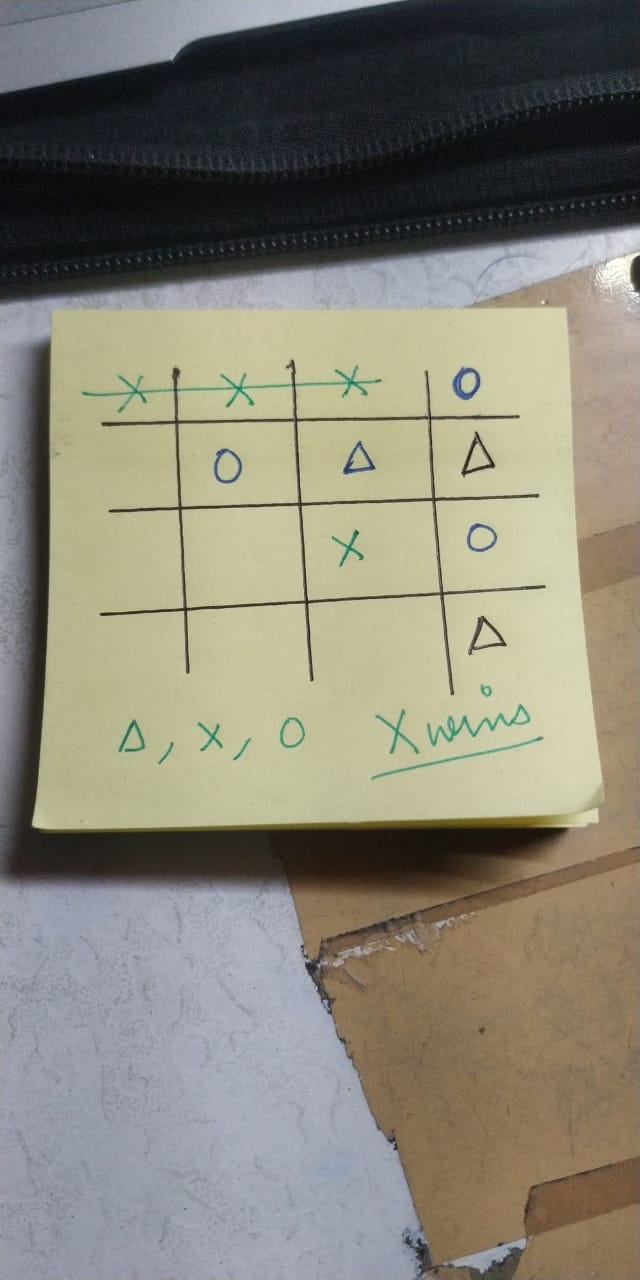 X X X O
O Δ Δ
X O
Δ
Δ, X, O X wins